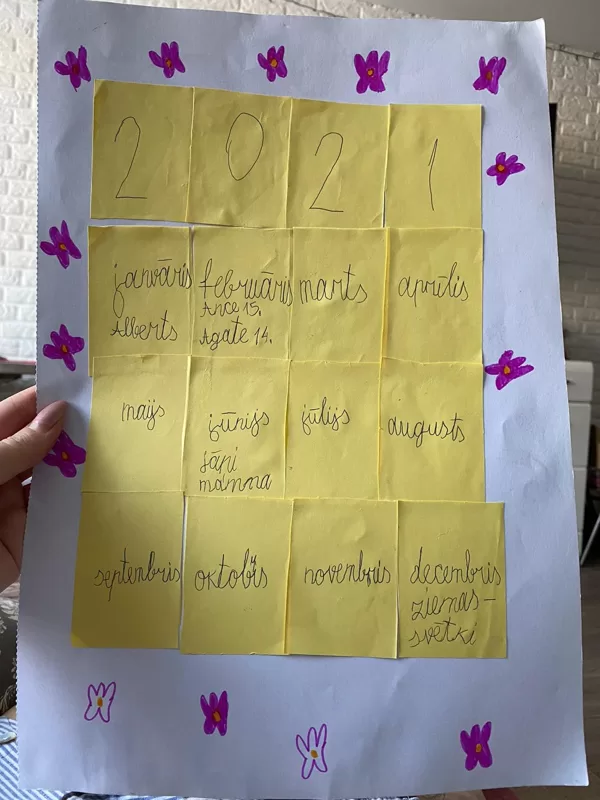 2 0 2 1
janvāris
Alberts
februāris
Ance 15.
Agate 14.
marts
aprīlis
maijs
jūnijs
jāņi
mamma
jūlijs
augusts
septembris
oktobŗis
novembris
decembris
ziemas-
svētki